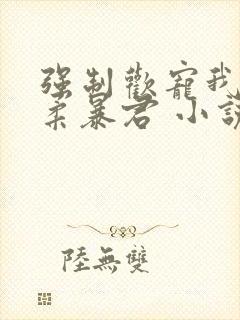 強制歡寵我
柔暴君 小說
陸無雙